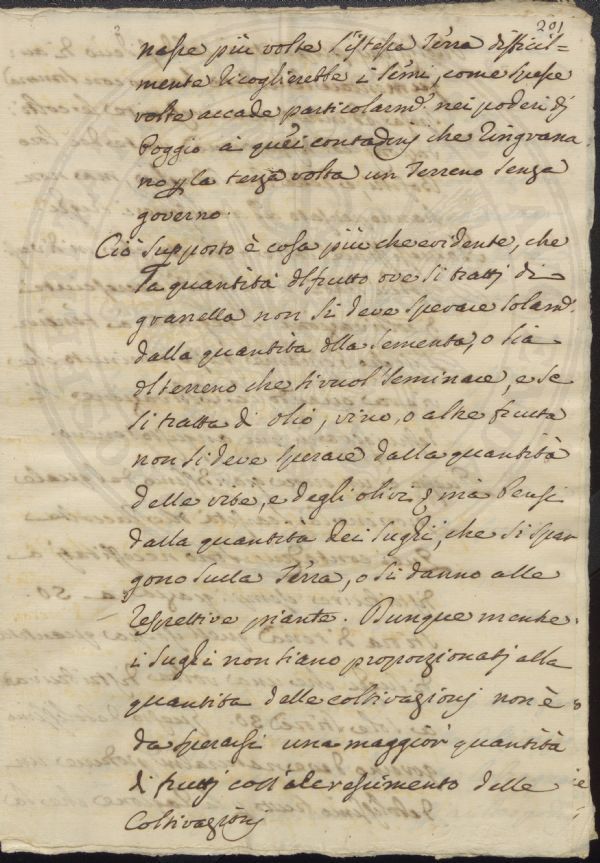 201
nasse più volte l'istessa Terra difficil=
mente ricoglierebbe i semi, come spesse
volte accade particolarmte. nei poderi dj
Poggio à quei contadinj che ringrana
no p la terza volta un Terreno senza
governo.
Ciò supposto è cosa più che evidente, che
la quantità del frutto ove si trattj di
granella non si deve sperare solamte.
dalla quantità della sementa, o sia
del terreno che si vuol seminare, e se
si tratta di olio, vino, o altre frutta
non si deve sperare dalla quantità
delle vite, e degli olivi; mà bensi
dalla quantità dei sughi, che si spar
gono sulla Terra, o si danno alle
respettive piante. Dunque mentre
i sughi non siano proporzionatj alla
quantità delle coltivazionj non è
da sperarsi una maggior quantità
di fruttj coll'accrescimento delle
Coltivazionj